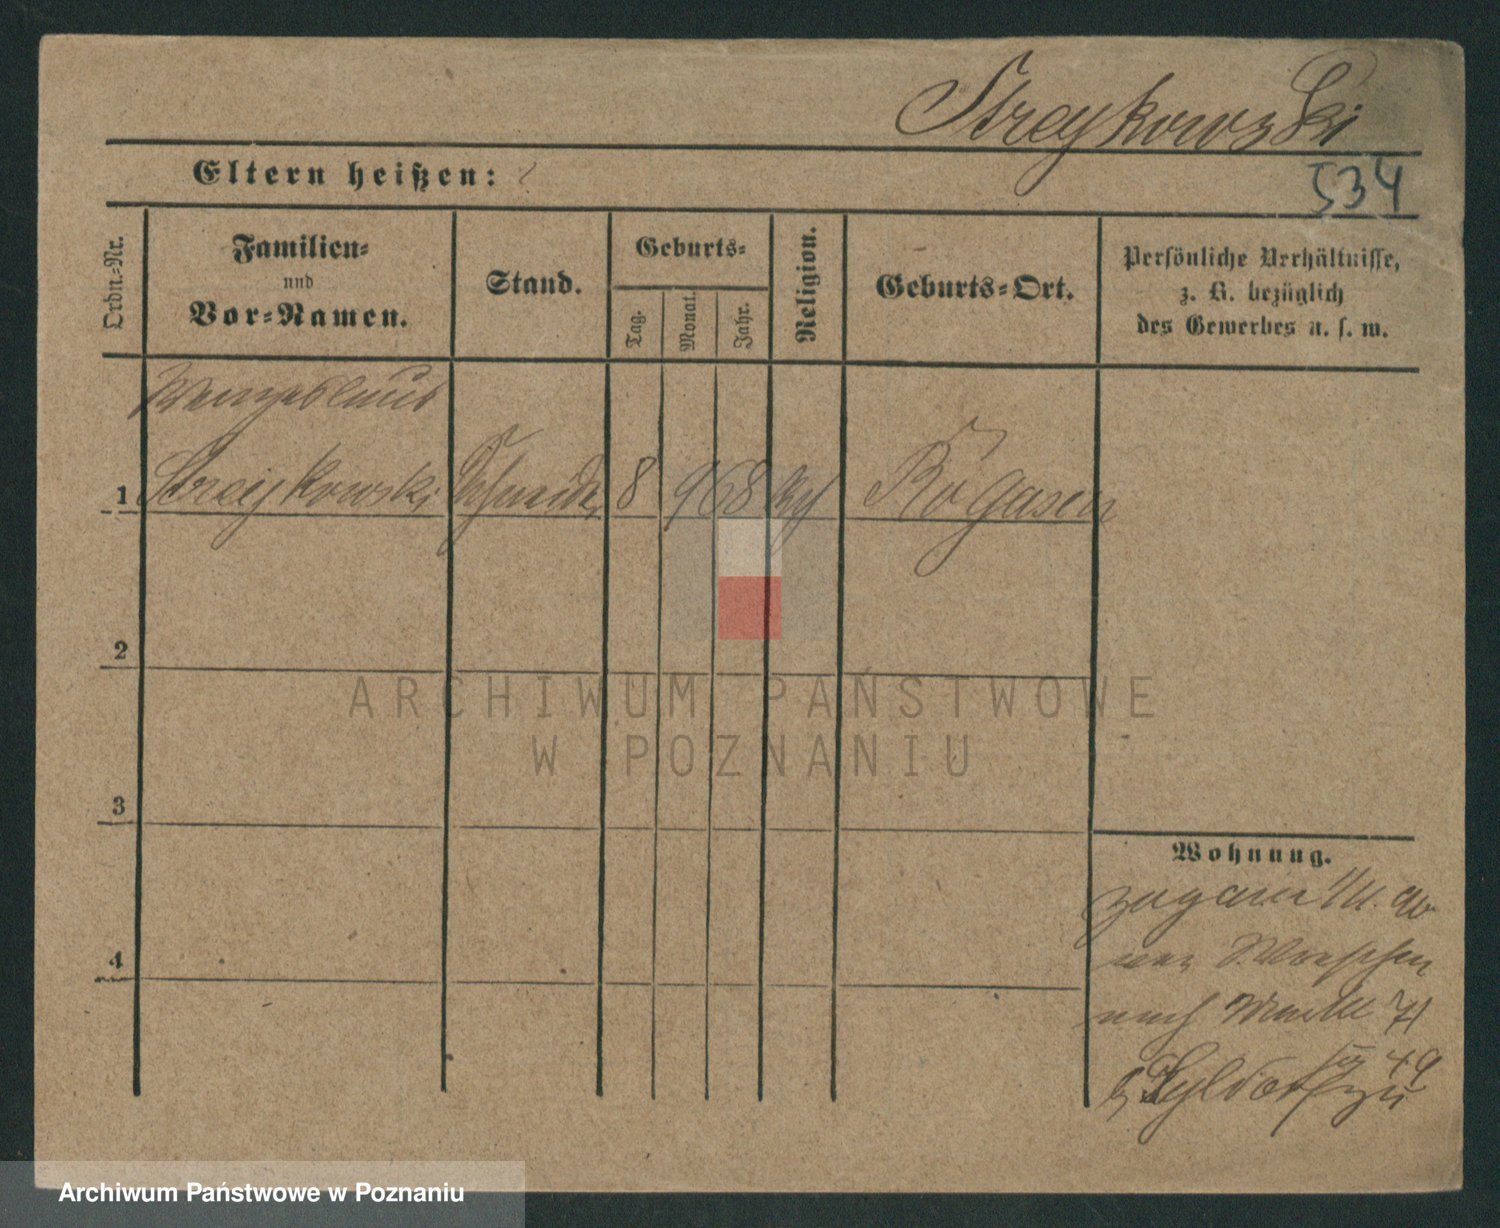 Streykowski
Eltern heißen:
534
Ordn.-Nr.
Familien-
und
Vor-Namen.
Stand.
Geburts-
Tag.
Monat.
Jahr.
Religion.
Geburts-Ort.
Persönliche Verhältnisse,
z. B. bezüglich
des Gewerbes u. s. w.
Wenzeslaus
1 Streykowski Schneider 8 9 68 Rogasen
2
3
4
Wohnung.
nach 71
49
ARCHIWUM PAŃSTWOWE
W POZNANIU
Archiwum Państwowe w Poznaniu